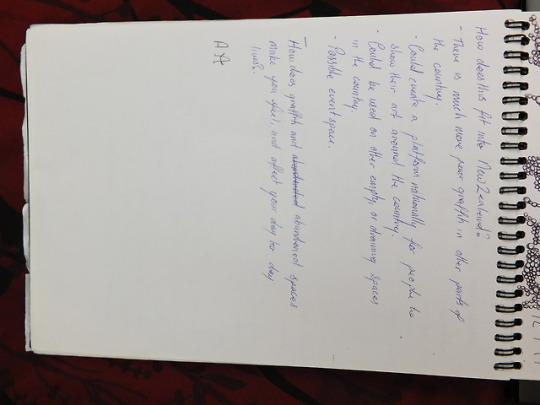 How does this fit into New Zealand?
- There is much more poor graffiti in other parts of
the country.
- Could create a platform nationally for people to
show their art around the country.
- Could be used on other empty, or draining spaces
in the country.
- Possible event space.
How does graffiti and abandoned spaces
make you feel, and affect your day to day
lives?